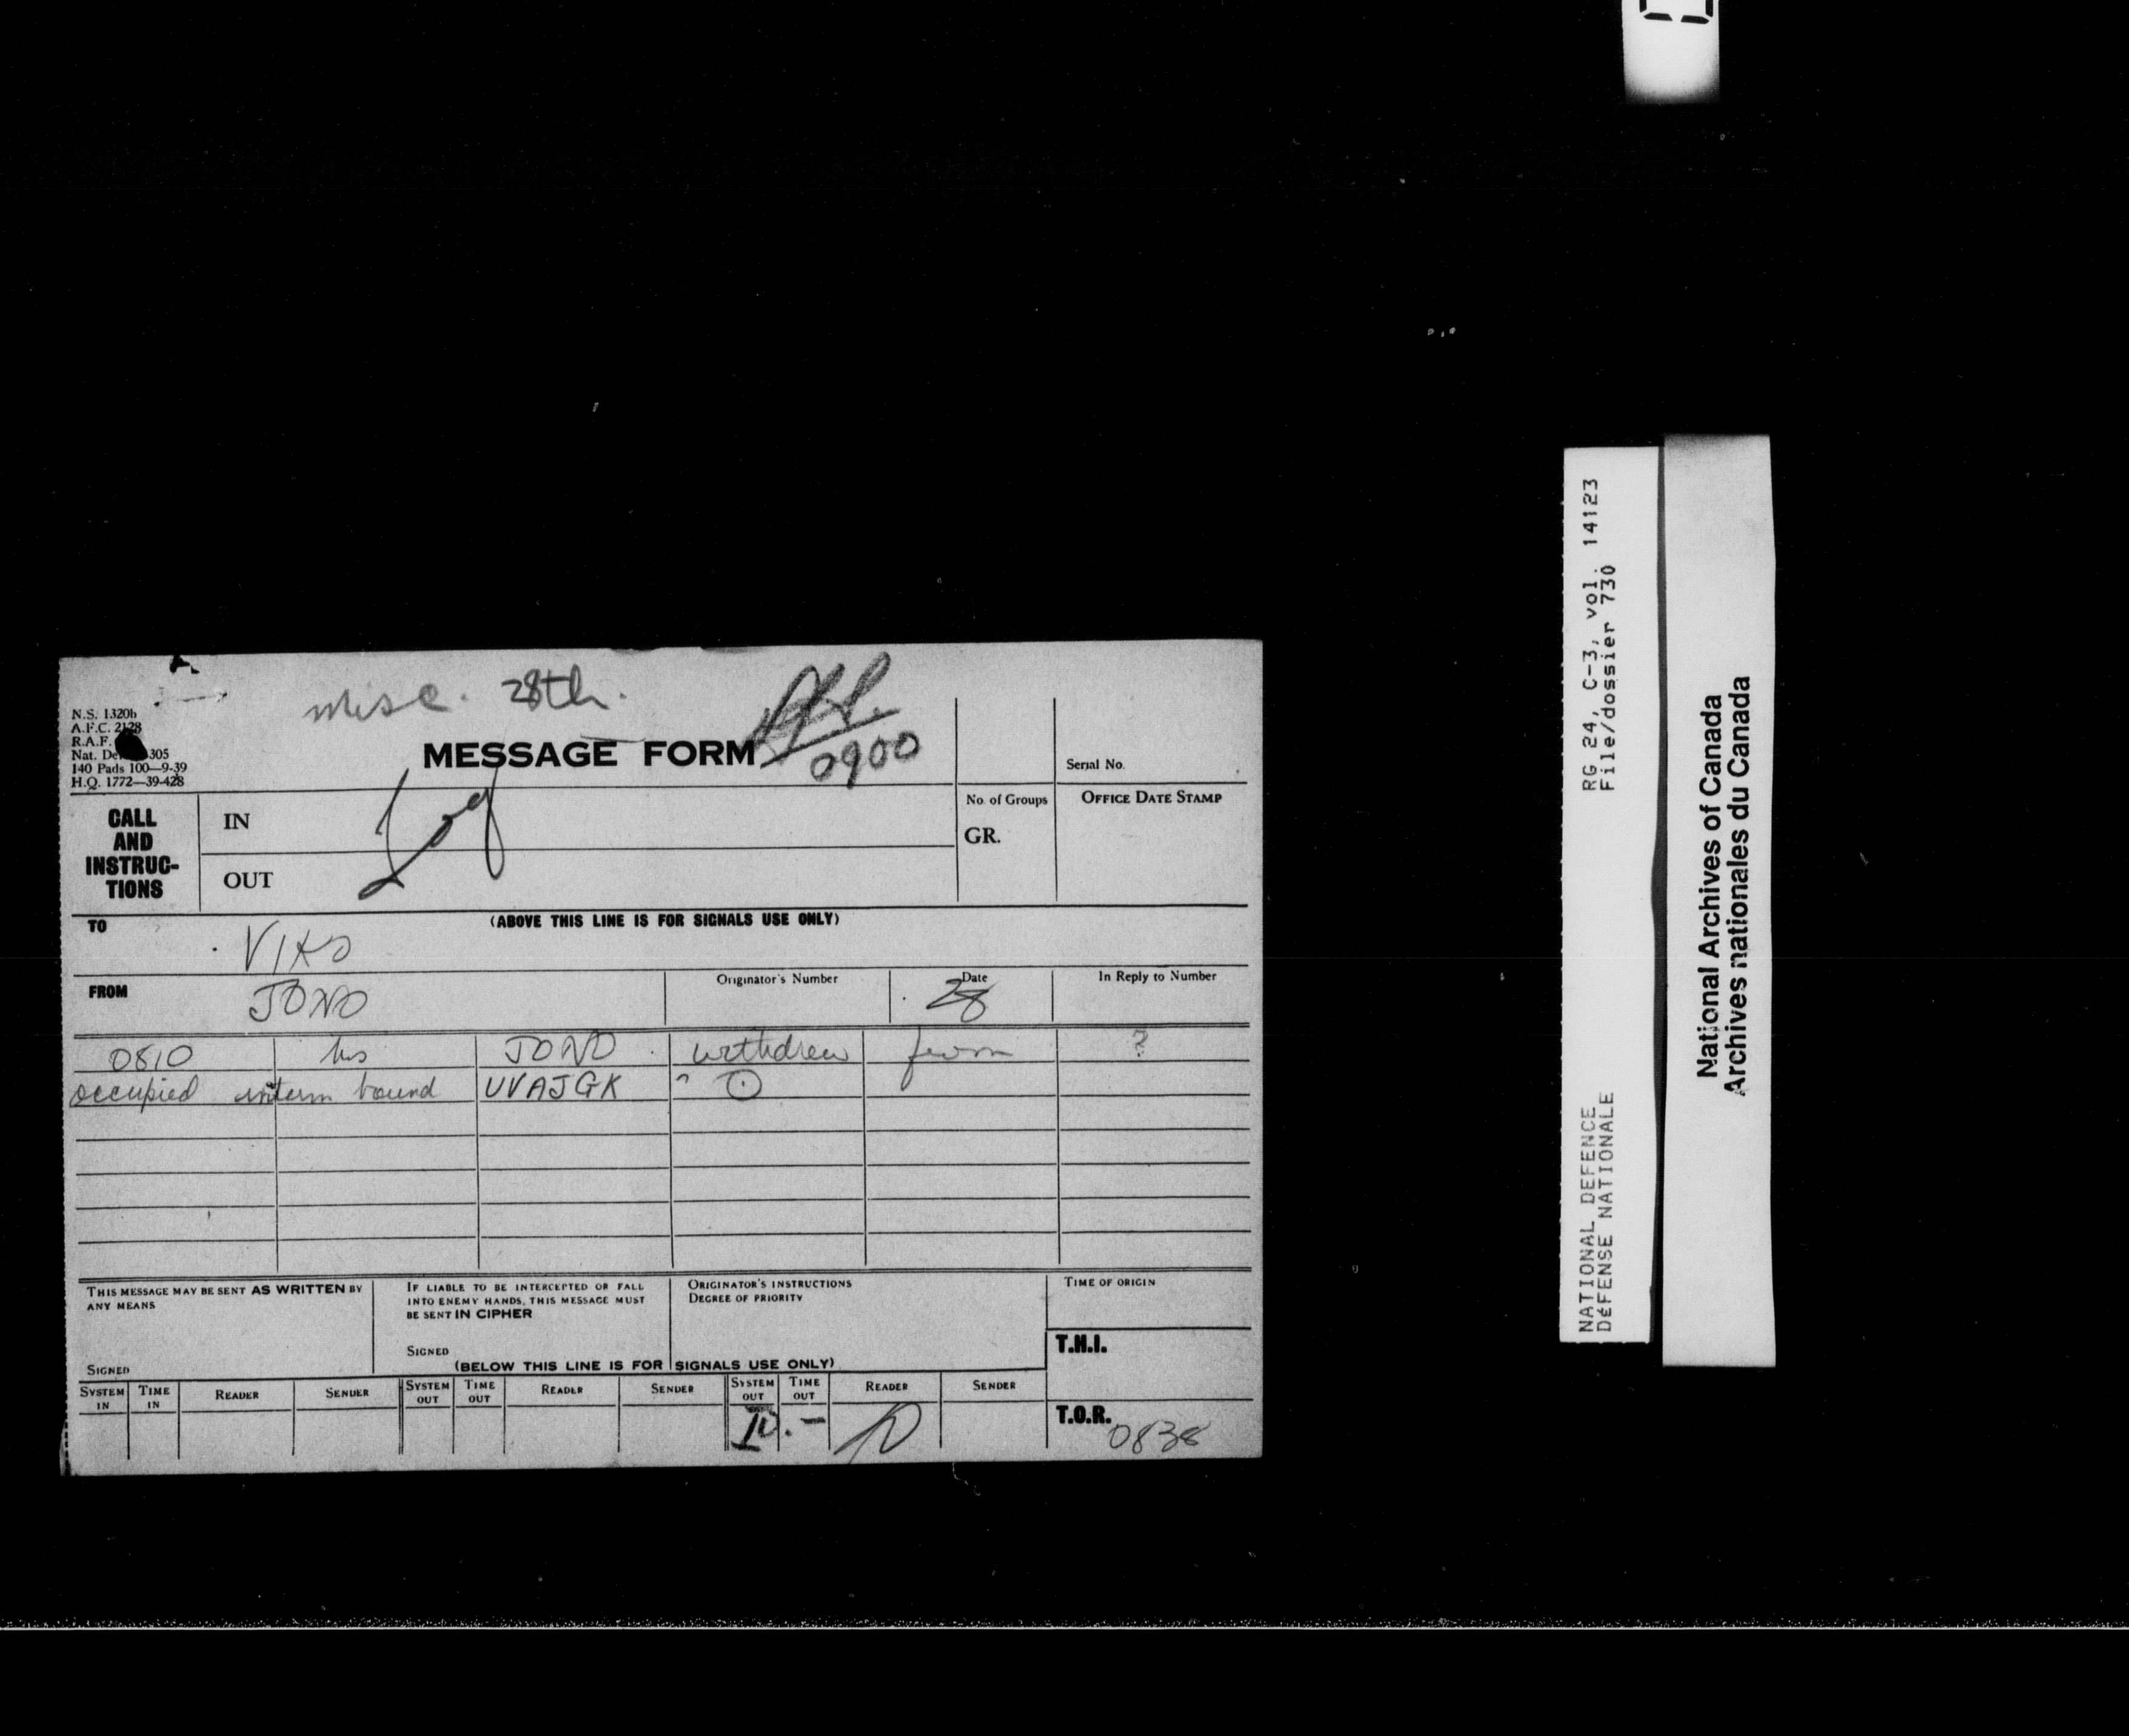 misc. 28th.
0900
N.S. 1320b
A.F.C. 2128
R.A.F.
Nat. De 305
140 Pads 100—9-39
H.Q. 1772—39-428
MESSAGE FORM
Serial No.
CALL AND INSTRUC-TIONS
IN
OUT
Log
No. of Groups
GR.
OFFICE DATE STAMP
(ABOVE THIS LINE IS FOR SIGNALS USE ONLY)
TO VIKO
FROM JONO
Originator's Number
Date 28
In Reply to Number
0810 hrs JONO withdrew from ?
occupied interm bound UVAJGK ⊙
THIS MESSAGE MAY BE SENT AS WRITTEN BY ANY MEANS
SIGNED
IF LIABLE TO BE INTERCEPTED OR FALL INTO ENEMY HANDS, THIS MESSAGE MUST BE SENT IN CIPHER
SIGNED
ORIGINATOR'S INSTRUCTIONS
DEGREE OF PRIORITY
TIME OF ORIGIN
T.H.I.
(BELOW THIS LINE IS FOR SIGNALS USE ONLY)
SYSTEM IN TIME IN READER SENDER SYSTEM OUT TIME OUT READER SENDER SYSTEM OUT TIME OUT READER SENDER
T.O.R. 0838
RG 24, C-3, vol. 14123
File/dossier 730
NATIONAL DEFENCE
DéFENSE NATIONALE
National Archives of Canada
Archives nationales du Canada